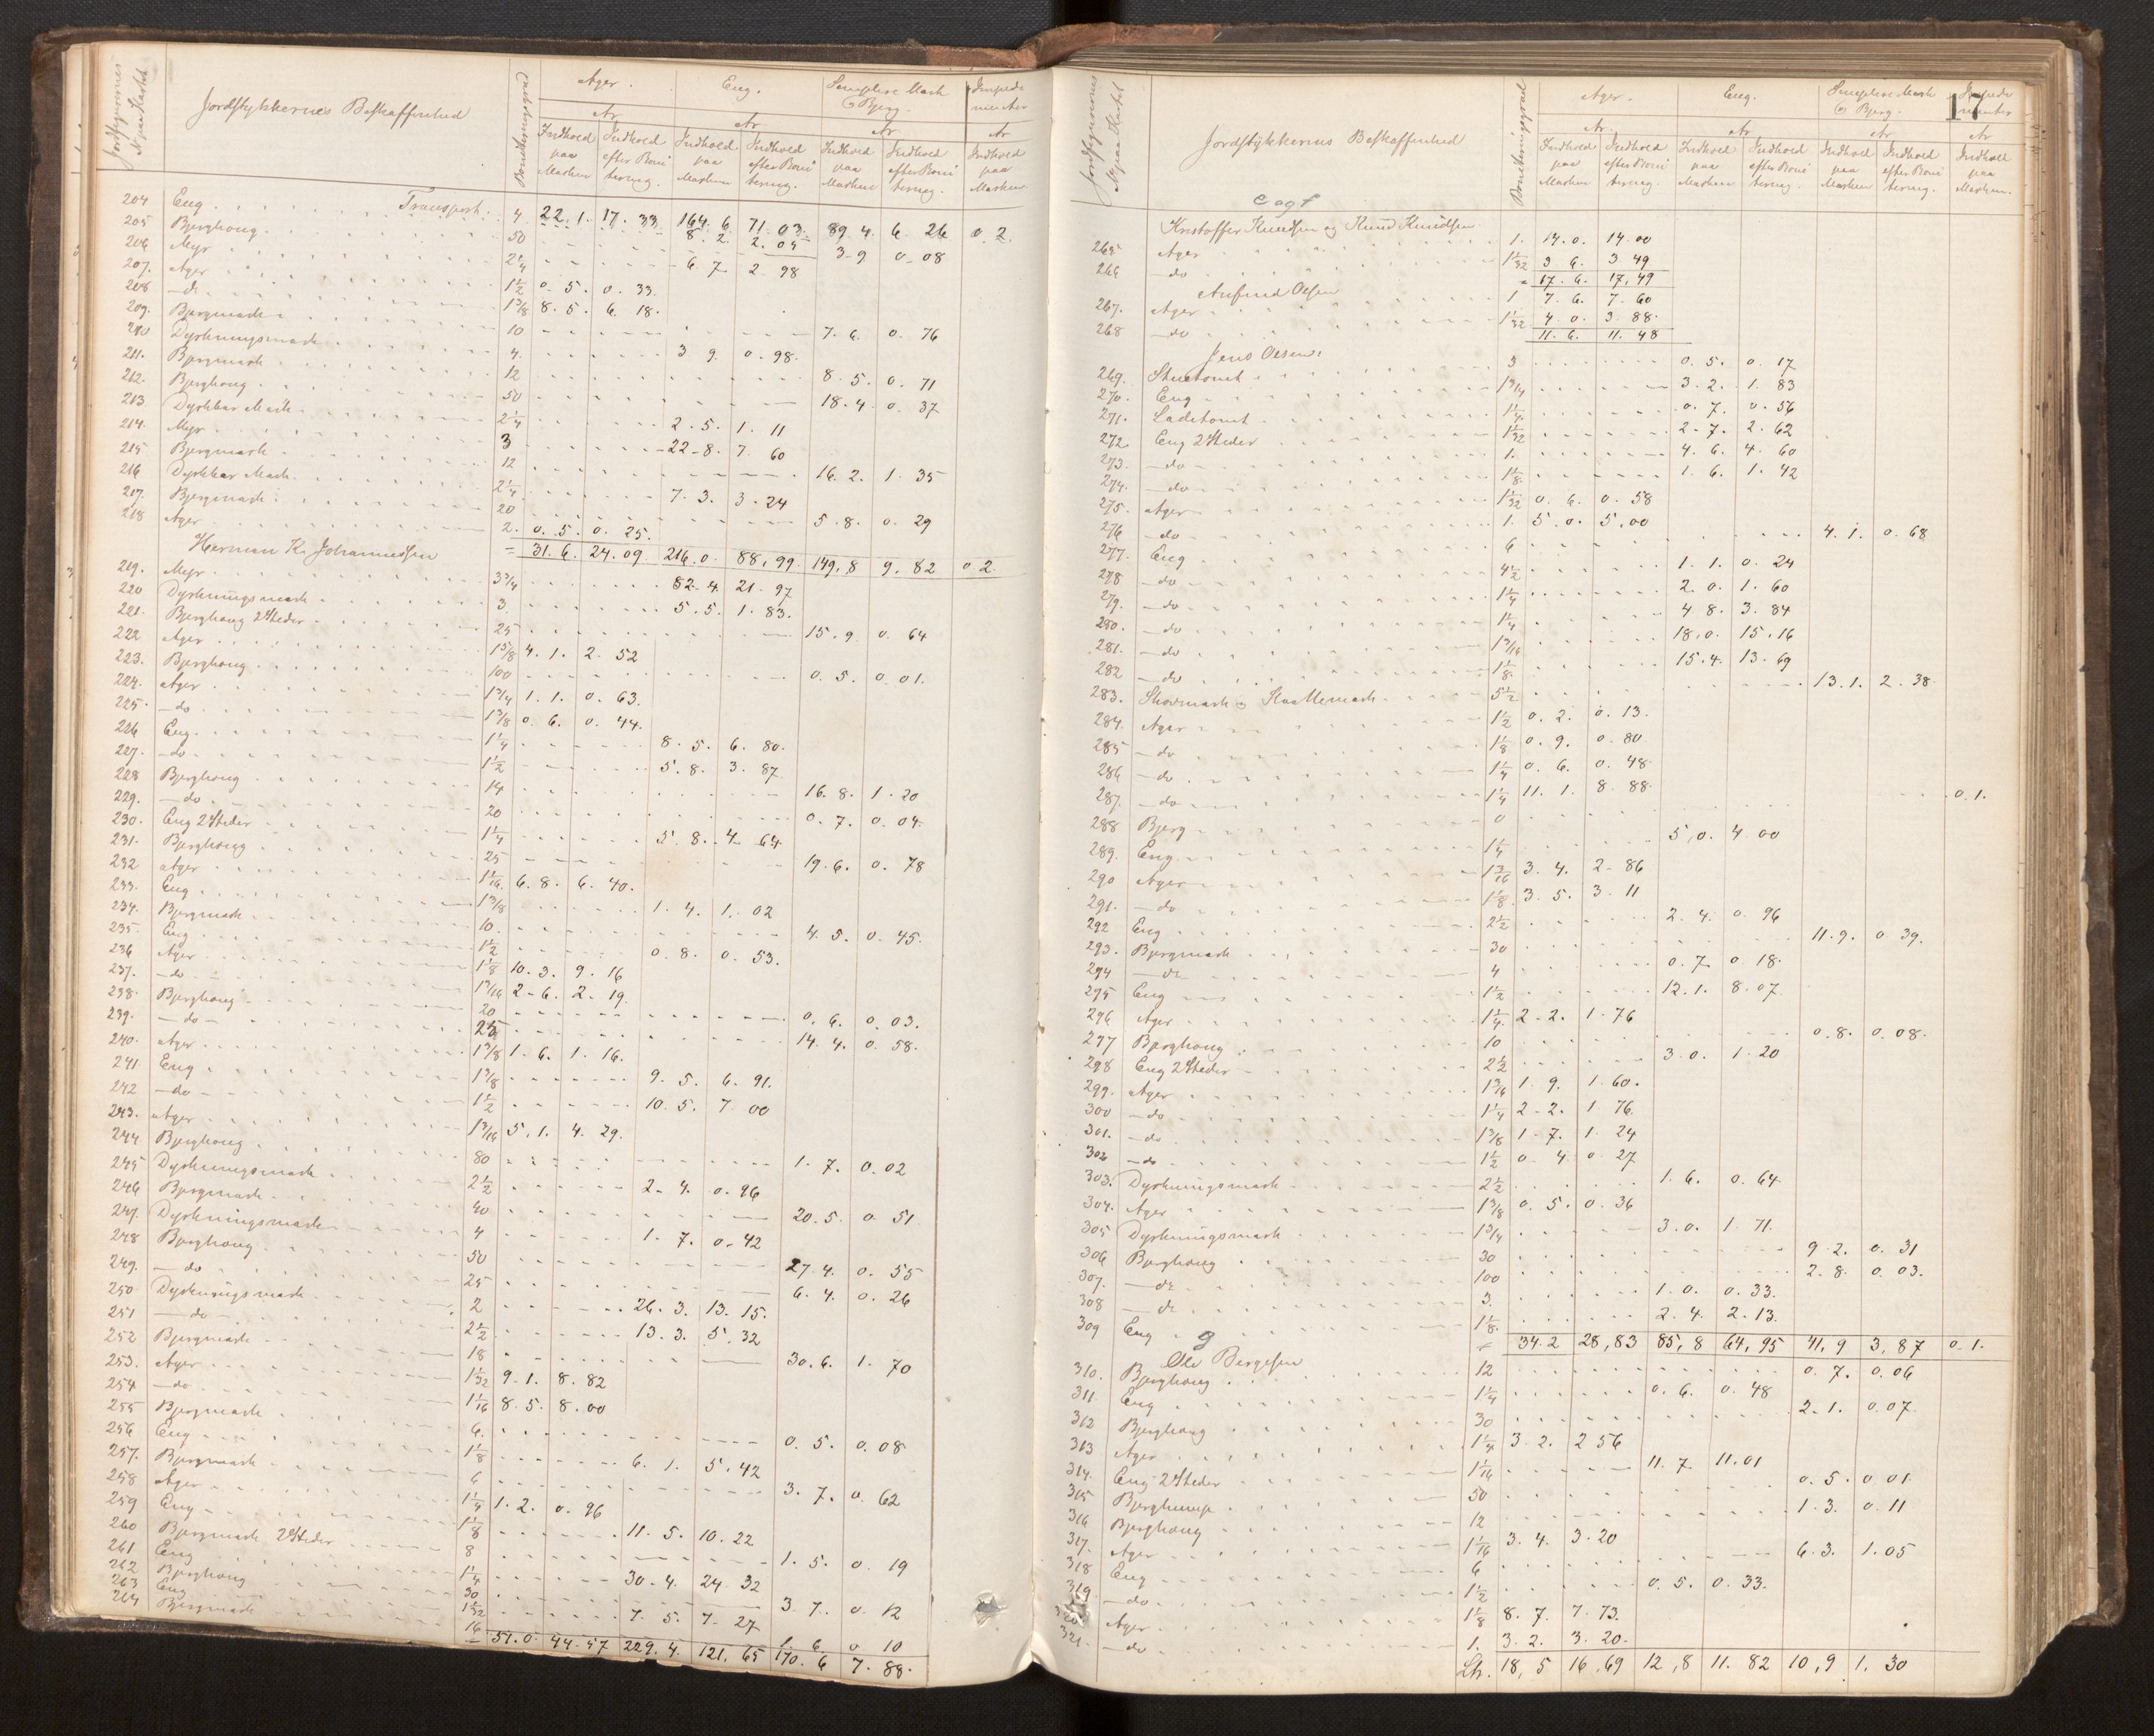 Jordfigurernes No paa Kartet | Jordstykkernes Beskaffenhed | Boniteringsgrad | Ager. | Eng. | Simplere Mark & Bjerg. | Impedimenter
Ar | Ar | Ar | Ar
Indhold paa Marken | Indhold efter Bonitering. | Indhold paa Marken | Indhold efter Bonitering. | Indhold paa Marken | Indhold efter Bonitering. | Indhold paa Marken
Transport: 22. 1. 17. 33. 164. 6. 71. 03. 89. 4. 6. 26 0. 2.
204 Eng 4 8. 2. 2. 04
205 Bjerghaug 50 3. 9. 0. 08
206 Myr 2 1/4 6. 7. 2. 98
207. Ager 1 1/2 0. 5. 0. 33.
208 do 1 3/8 8. 5. 6. 18.
209. Bjergmark 10 7. 6. 0. 76
210 Dyrkningsmark 4. 3. 9. 0. 98.
211. Bjergmark 12 8. 5. 0. 71
212. Bjerghaug 50 18. 4. 0. 37
213 Dyrkbar Mark 2 1/4 2. 5. 1. 11
214. Myr 3 22. 8. 7. 60
215 Bjergmark 12 16. 2. 1. 35
216 Dyrkbar Mark 2 1/4 7. 3. 3. 24
217. Bjergmark 20 5. 8. 0. 29
218 Ager 2. 0. 5. 0. 25.
= 31. 6. 24. 09. 216. 0. 88, 99. 149, 8 9. 82 0 2.
Herman K. Johannessen
219. Myr 3 3/4 82. 4. 21. 97
220 Dyrkningsmark 3 5. 5. 1. 83.
221. Bjerghaug 2 Steder 25 15. 9 0. 64
222 Ager 1 5/8 4. 1. 2. 52
223. Bjerghaug 100 0. 5. 0. 01.
224. Ager 1 3/4 1. 1. 0. 63.
225. do 1 3/8 0. 6. 0. 44.
226 Eng 1 1/4 8. 5. 6. 80.
227. do 1 1/2 5. 8. 3. 87
228 Bjerghaug 14 16. 8. 1. 20
229. do 20 0. 7. 0. 04.
230. Eng 2 Steder 1 1/4 5. 8. 4. 64
231. Bjerghaug 25 19. 6. 0. 78
232 Ager 1 1/16 6. 8. 6. 40.
233. Eng 1 3/8 1. 4. 1. 02
234. Bjergmark 10. 4. 5. 0. 45.
235. Eng 1 1/2 0. 8. 0. 53.
236 Ager 1 1/8 10. 3. 9. 16
237. do 1 3/16 2. 6. 2. 19.
238. Bjerghaug 20 0. 6. 0. 03.
239. do 25 14. 4. 0. 58.
240. Ager 1 3/8 1. 6. 1. 16.
241 Eng 1 3/8 9. 5. 6. 91.
242 do 1 1/2 10. 5. 7. 00
243. Ager 1 3/16 5. 1. 4. 29.
244 Bjerghaug 80 1. 7. 0. 02
245 Dyrkningsmark 2 1/2 2. 4. 0. 96
246 Bjergmark 40 20. 5. 0. 51
247. Dyrkningsmark 4 1. 7. 0. 42
248 Bjerghaug 50 27. 4. 0. 55
249. do 25 6. 4. 0. 26
250 Dyrkningsmark 2 26. 3. 13. 15.
251 do 2 1/2 13. 3. 5. 32
252 Bjergmark 18 30. 6. 1. 70
253. Ager 1 1/32 9. 1. 8. 82
254 do 1 1/16 8. 5. 8. 00
255 Bjergmark 6. 0. 5. 0. 08
256 Eng 1 1/8 6. 1. 5. 42
257. Bjergmark 6 3. 7. 0. 62
258 Ager 1 1/4 1. 2. 0. 96
259 Eng 1 1/8 11. 5. 10. 22
260 Bjergmark 2 Steder 8 1. 5. 0. 19
261 Eng 1 1/4 30. 4. 24. 32
262 Bjerghaug 30 3. 7. 0. 12
263 Eng 1 1/32 7. 5. 7. 27
264 Bjergmark 16 1. 6 0. 10
= 51. 0. 44. 57 229. 4. 121. 65 170. 6 7. 88.
17
Jordfigurernes No paa Kartet | Jordstykkernes Beskaffenhed | Boniteringsgrad | Ager. | Eng. | Simplere Mark & Bjerg. | Impedimenter
Ar. | Ar | Ar | Ar
Indhold paa Marken | Indhold efter Bonitering. | Indhold paa Marken | Indhold efter Bonitering. | Indhold paa Marken | Indhold efter Bonitering. | Indhold paa Marken.
e og f
Kristoffer Knudsen og Knud Knudsen
265 Ager 1. 14. 0. 14. 00
266 do 1 1/32 3. 6. 3. 49
= 17. 6. 17, 49
Anfind Olsen
267. Ager 1 7. 6. 7. 60
268 do 1 1/32 4. 0. 3. 88.
11. 6. 11. 48
Jens Olsen:
269. Stuetomt 3 0. 5. 0. 17
270. Eng 1 3/4 3. 2. 1. 83
271. Ladetomt 1 1/4 0. 7. 0. 56
272. Eng 2 Steder 1 1/32 2. 7. 2. 62
273. do 1. 4. 6. 4. 60
274. do 1 1/8 1. 6. 1. 42
275. Ager 1 1/32 0. 6. 0. 58
276 do 1. 5. 0. 5, 00
277. Eng 6 4. 1. 0. 68
278 do 4 1/2 1. 1. 0. 24
279. do 1 1/4 2. 0. 1. 60
280. do 1 1/4 4. 8. 3. 84
281. do 1 3/16 18. 0. 15. 16
282 do 1 1/8 15. 4. 13. 69
283. Skovmark & Slaattemark 5 1/2 13. 1. 2. 38.
284. Ager 1 1/2 0. 2. 0. 13.
285 do 1 1/8 0. 9. 0. 80
286 do 1 1/4 0. 6. 0. 48
287. do 1 1/4 11. 1. 8. 88
288 Bjerg 0 0. 1.
289. Eng 1 1/4 5, 0. 4. 00
290 Ager 1 3/16 3. 4. 2. 86
291. do 1 1/8 3. 5. 3. 11
292 Eng 2 1/2 2. 4. 0. 96
293. Bjergmark 30 11. 9. 0 39.
294 do 4 0. 7 0. 18.
295 Eng 1 1/2 12. 1. 8. 07
296 Ager 1 1/4 2. 2. 1. 76
297 Bjerghaug 10 0. 8. 0. 08.
298 Eng 2 Steder 2 1/2 3. 0. 1. 20
299. Ager 1 3/16 1. 9. 1. 60.
300 do 1 1/4 2. 2. 1. 76.
301. do 1 3/8 1. 7. 1. 24
302 do 1 1/2 0. 4. 0. 27
303. Dyrkningsmark 2 1/2 1. 6. 0. 64
304. Ager 1 3/8 0. 5. 0. 36
305 Dyrkningsmark 1 3/4 3. 0. 1. 71.
306 Bjerghaug 30 9. 2. 0. 31
307. do 100 2. 8. 0. 03.
308 do 3. 1. 0. 0. 33.
309 Eng 1 1/8 2. 4. 2. 13.
= 34. 2 28, 83 85, 8 64, 95 41, 9 3, 87 0. 1.
g
Ole Bergesen
310. Bjerghaug 12 0. 7. 0. 06
311. Eng 1 1/4 0. 6. 0. 48
312 Bjerghaug 30 2. 1. 0. 07
313 Ager 1 1/4 3. 2. 2 56
314. Eng 2 Steder 1 1/16 11. 7 11. 01
315 Bjerghump 50 0. 5. 0 01.
316 Bjerghaug 12 1. 3. 0. 11
317. Ager 1 1/16 3. 4. 3. 20
318 Eng 6 6. 3. 1. 05
319. do 1 1/2 0. 5. 0. 33.
320 Ager 1 1/8 8. 7. 7. 73.
321. do 1. 3. 2. 3. 20.
Lh. 18, 5 16, 69 12, 8 11. 82 10, 9 1, 30